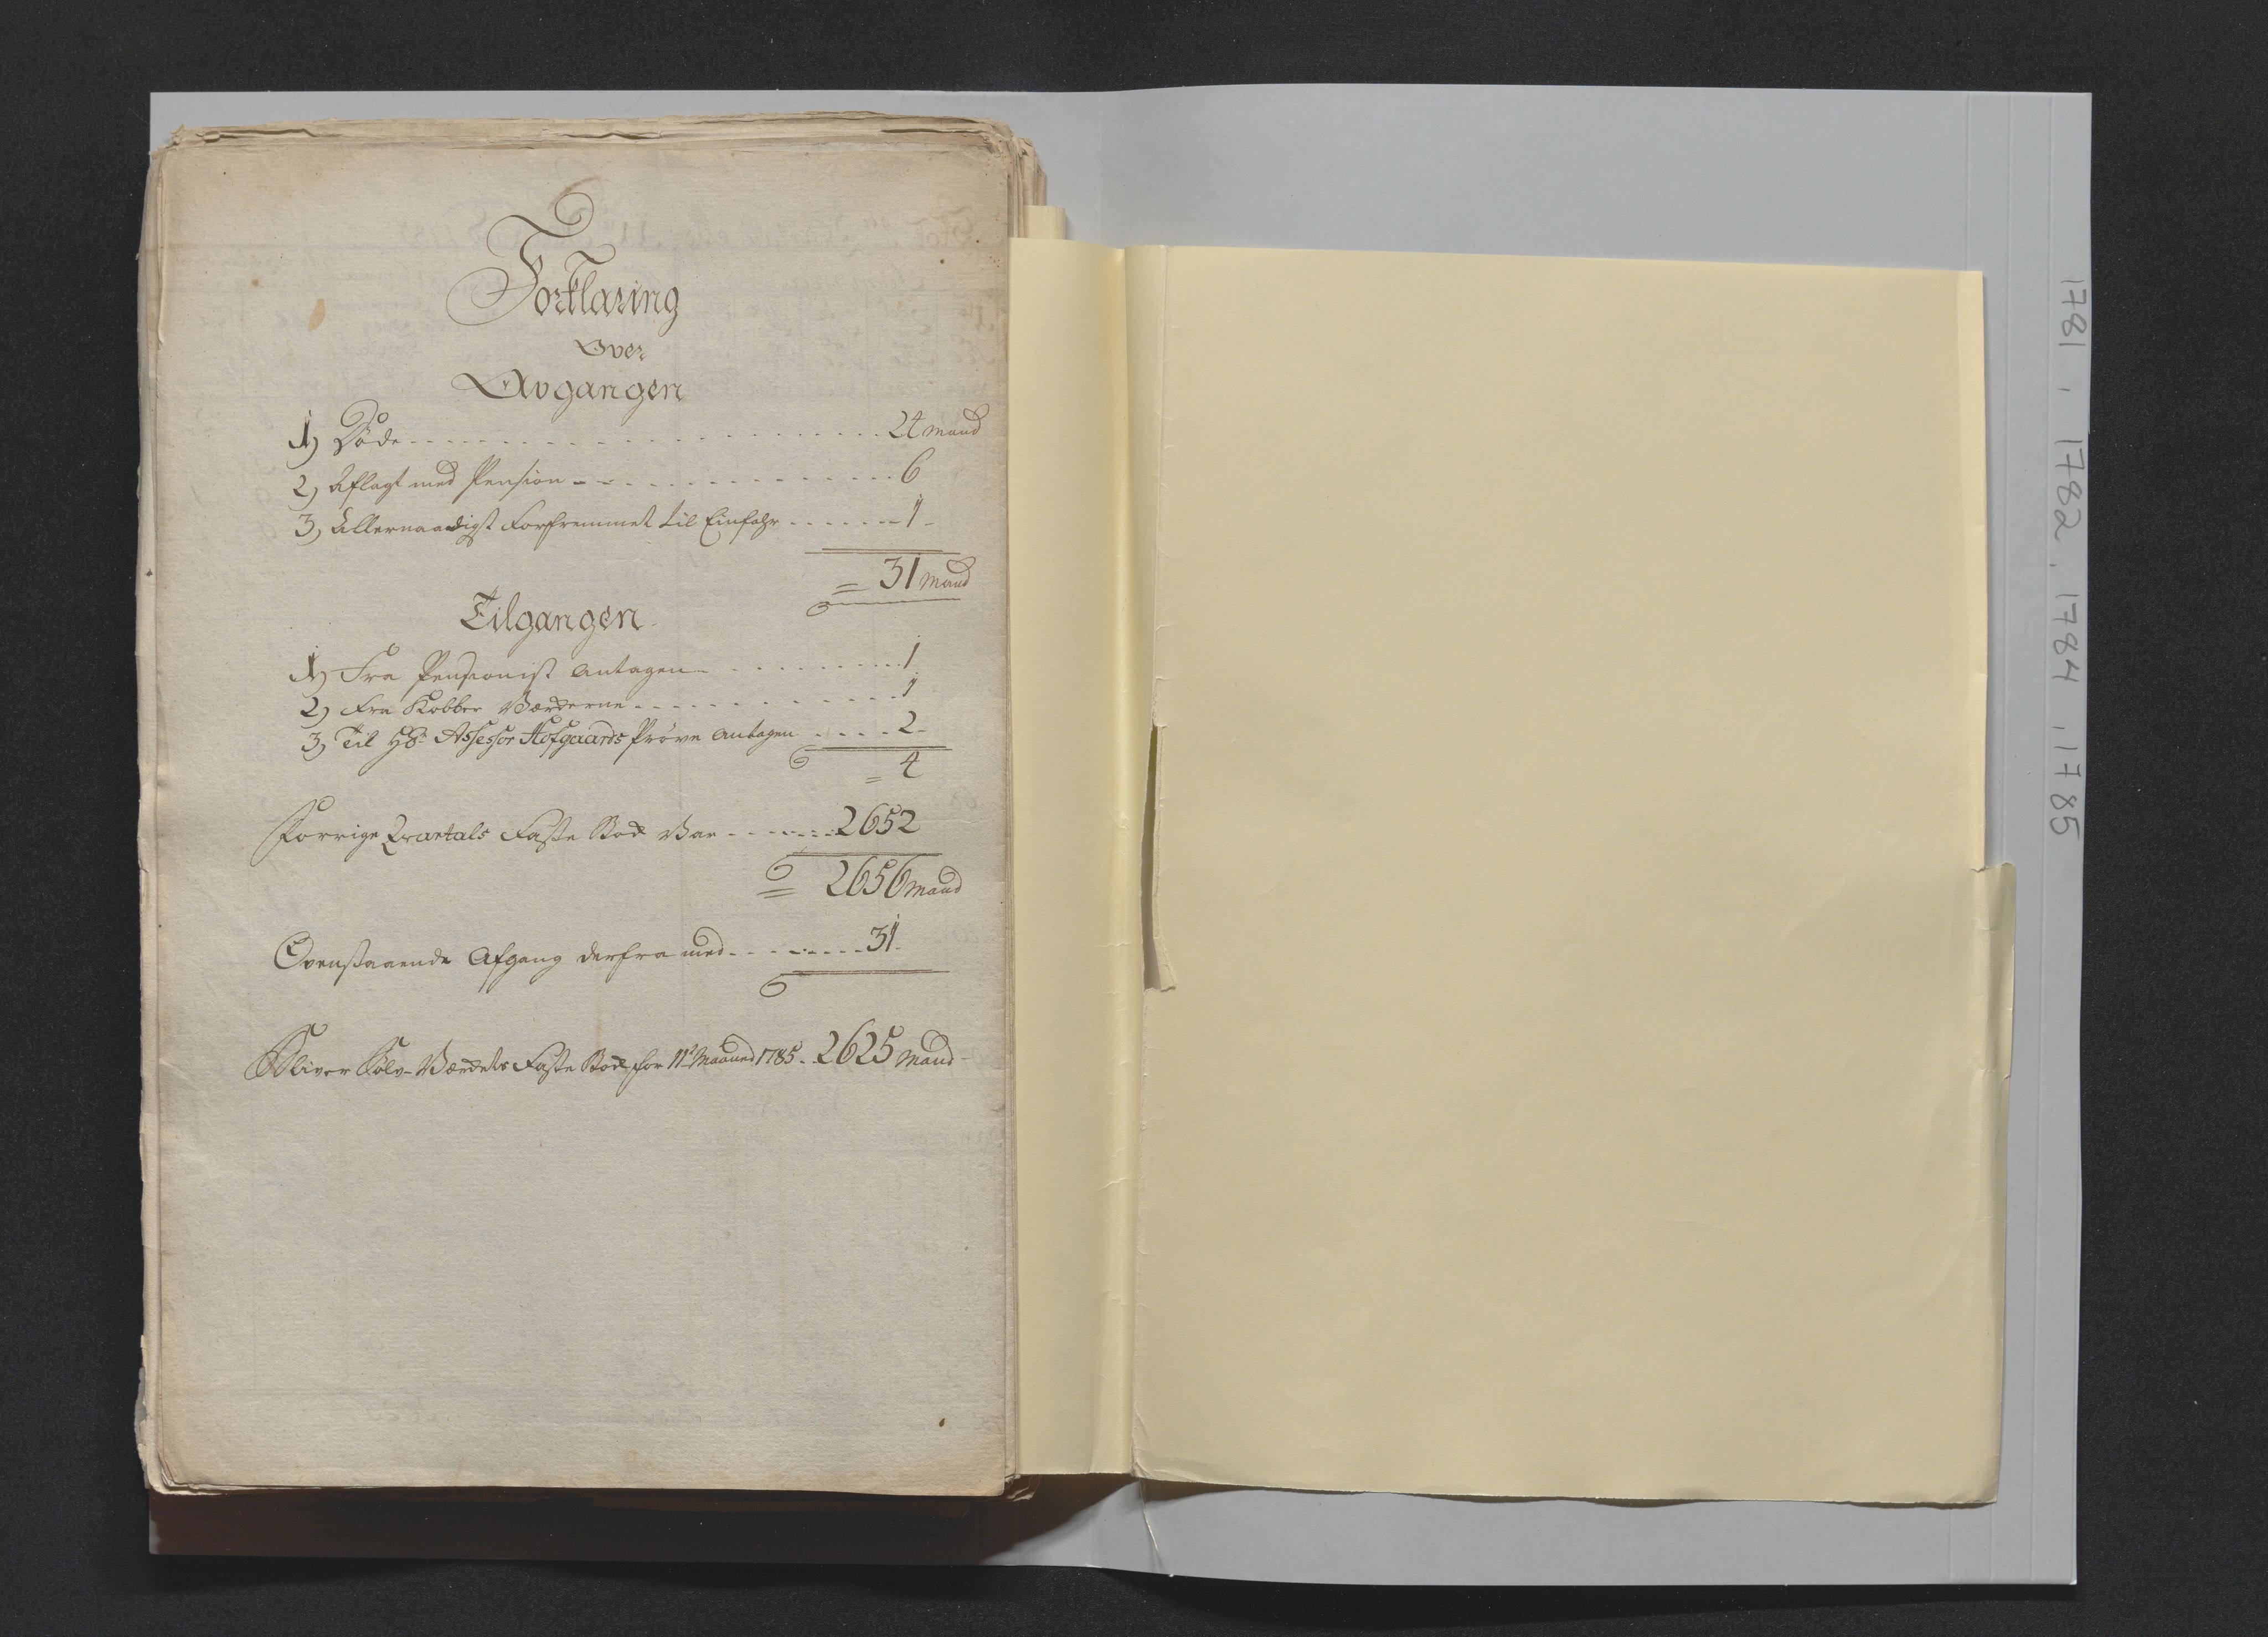 Forklaring
Over
Avgangen
1) Døde 24 mand
2) Aflagt med Pension 6
3) Allernaadigst Forfremmet til Einfahr 1
= 31 mand
Tilgangen
1) Fra Pensionist antagen 1
2) Fra Kobber Værkerne 1
3) Til Hr Assessor Hofgaards Prøve antagen 2
= 4
Forrige Qvartals Faste Stok Var 2652
= 2656 mand
Ovenstaaende Afgang derfra med 31
Bliver Sølv-Værkets Faste Stok for 11te Maaned 1785 2625 Mand
1781, 1782, 1784, 1785